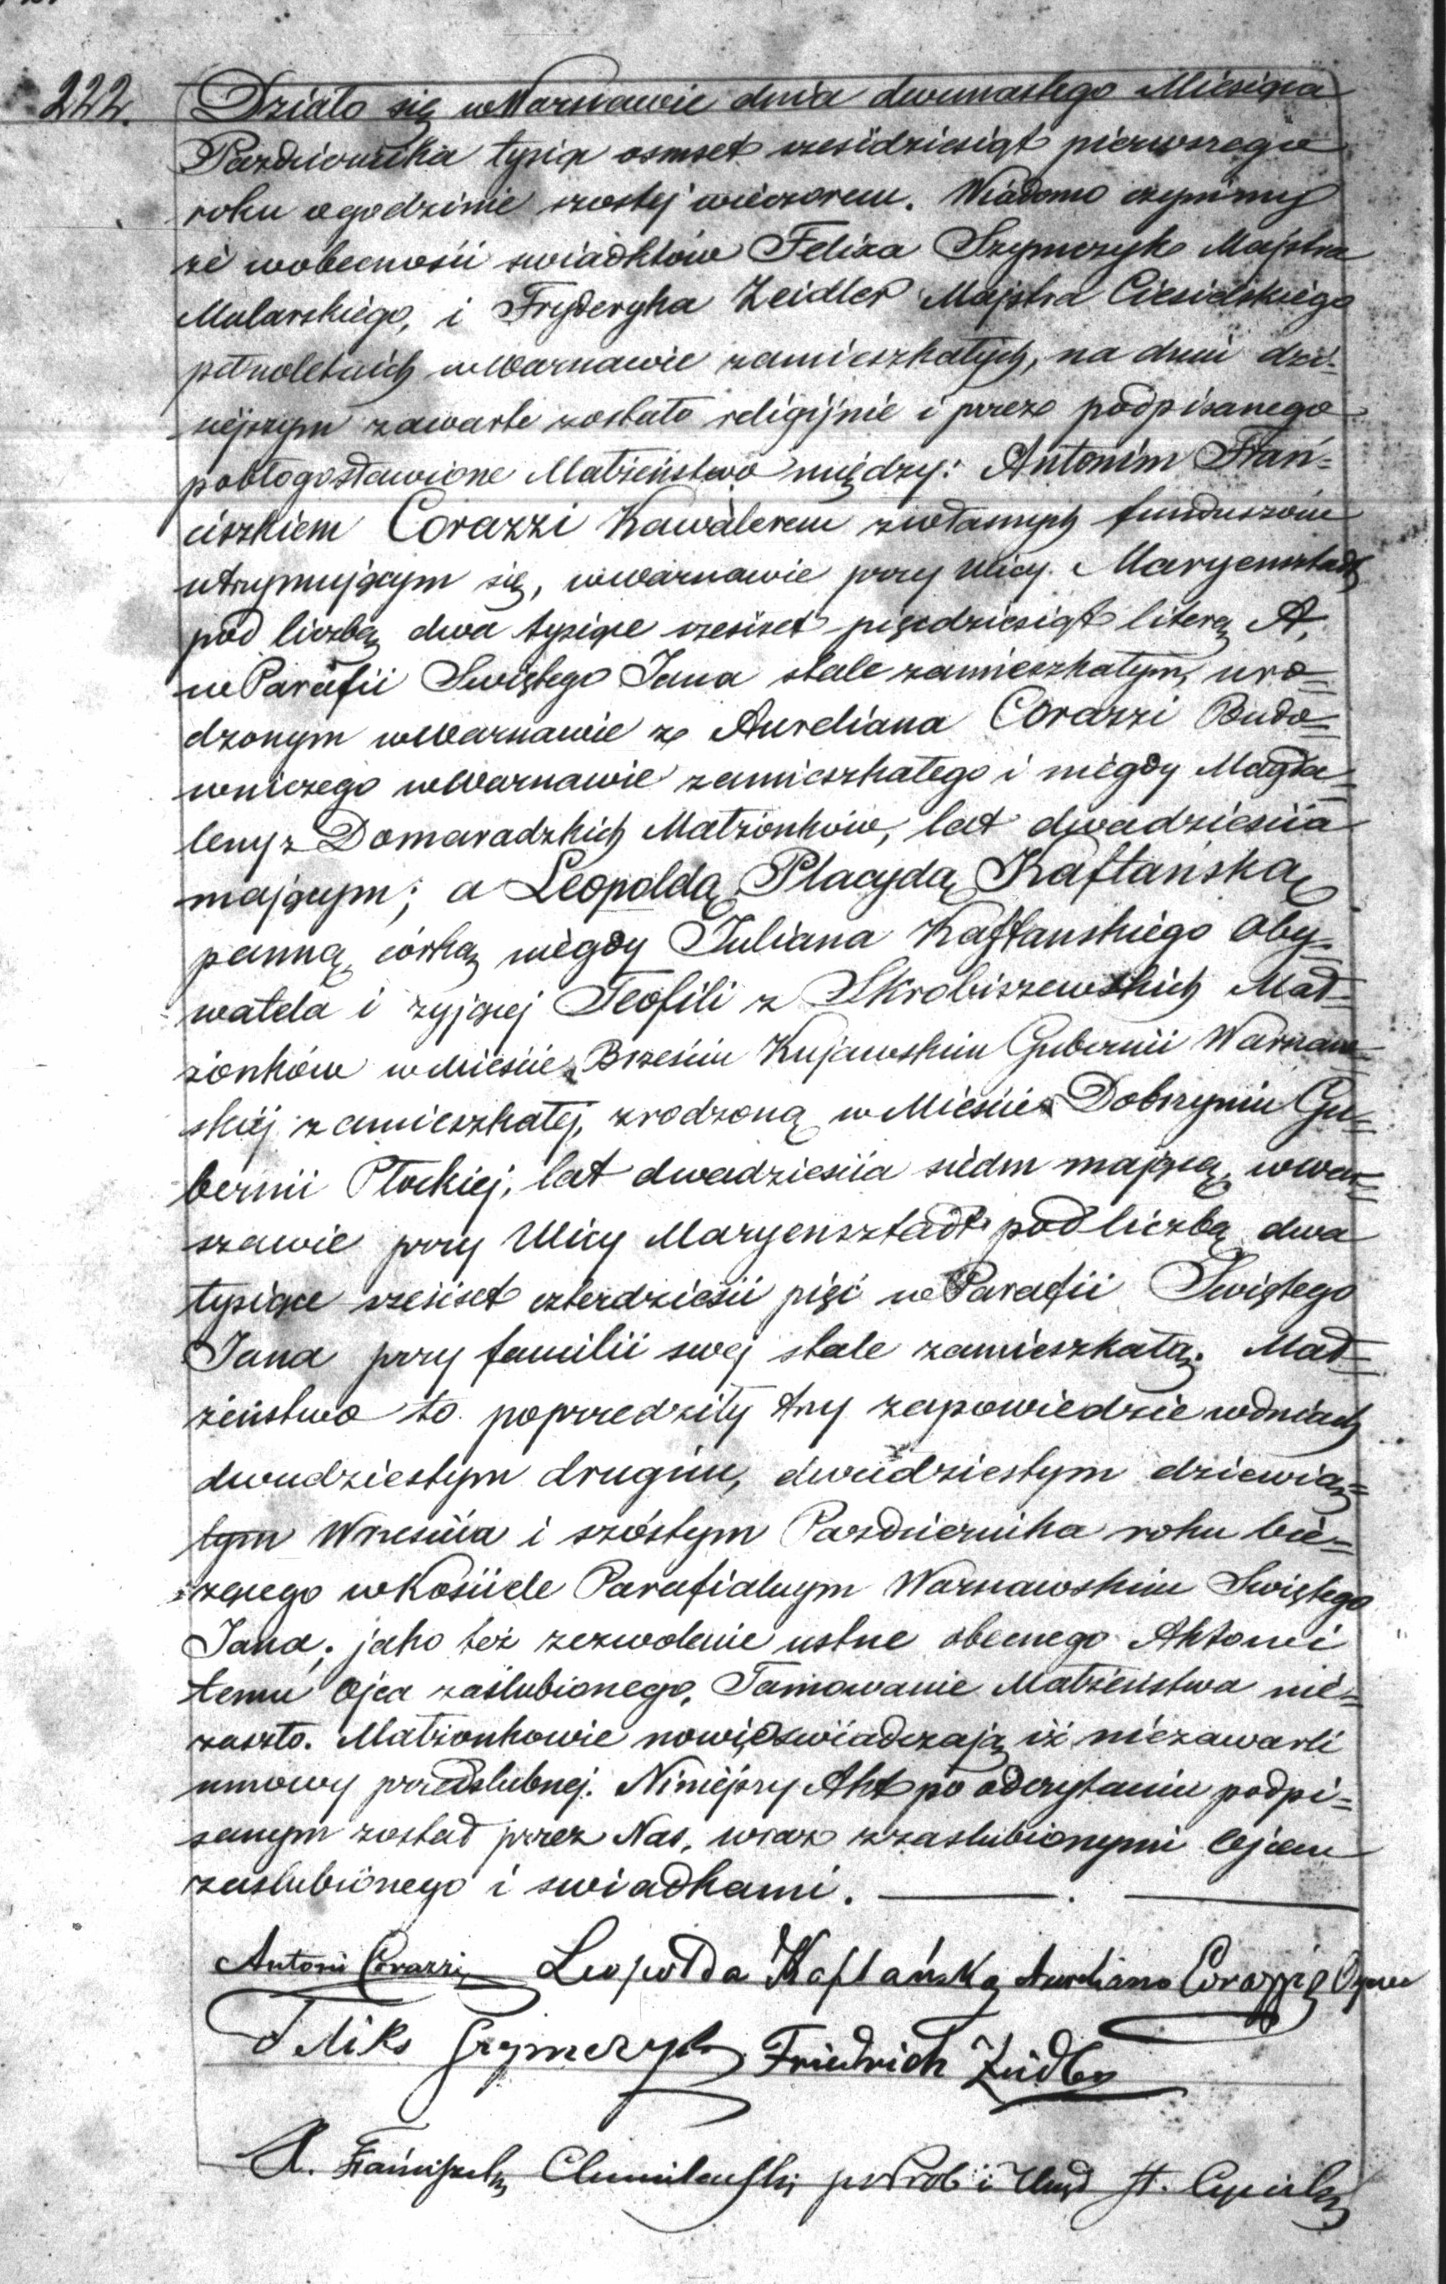 222.
Działo się w Warszawie dnia dwunastego Miesiąca
Pazdziernika tysiąc osmset szesédziesiąt pierwszego
roku o godzinie szostej wieczorem. Wiadomo czynimy
że w obecnosci swiadktów Felixa Szymczyk Majstra
Mularskiego, i Fryderyka Zeidler Majstra Ciesielskiego
pełnoletnich w Warszawie zamieszkałych, na dniu dzi=
siejszym zawarte zostało religijnie i przez podpisanego
pobłogosławione Małżeństwo między: Antonim Fran=
ciszkiem Corazzi Kawalerem z własnych funduszów
utrzymującym się, w Warszawie przy Ulicy Maryensztadt
pod liczbą dwa tysiące szesćset pięcdziesiąt literą A,
w Parafii Swiętego Jana stale zamieszkałym, uro=
dzonym w Warszawie z Aureliana Corazzi Budo=
wniczego w Warszawie zamieszkałego i niegdy Magda=
leny z Domaradzkich Małżonków, lat dwadziescia
mającym; a Leopoldą Placydą Kaftańską
panną, córką niegdy Juliana Kaftanskiego Oby=
watela i żyjącej Teofili z Skrobiszewskich Mał=
żonków w Miescie Brzesciu Kujawskim Gubernii Warszaw=
skiej zamieszkałej, zrodzoną w Miescie Dobrzyniu Gu=
bernii Płockiej, lat dwadziescia siedm mającą, w War=
szawie przy Ulicy Maryensztadt pod liczbą dwa
tysiące szesćset czterdziesci pięć w Parafii Swiętego
Jana przy familii swej stale zamieszkałą. Mał=
żeństwo to poprzedziły trzy zapowiedzie w dniach
dwudziestym drugim, dwudziestym dziewią=
tym Wrzesnia i szóstym Pazdziernika roku bie=
żącego w Kosciele Parafialnym Warszawskim Swiętego
Jana; jako też zezwolenie ustne obecnego Aktowi
temu Ojca zaślubionego, Tamowanie Małżeństwa nie=
zaszło. Małżonkowie nowi oswiadczają iż niezawarli
umowy przedslubnej. Niniejszy Akt po odczytaniu podpi=
sanym został przez Nas, wraz z zaslubionymi Ojcem
zaslubionego i swiadkami.
Antoni Corazzi Leopolda Kaftańska Aureliano Corazzi Oyciec
Feliks Szymczyk Friedrich Zeidler
X. Franciszek